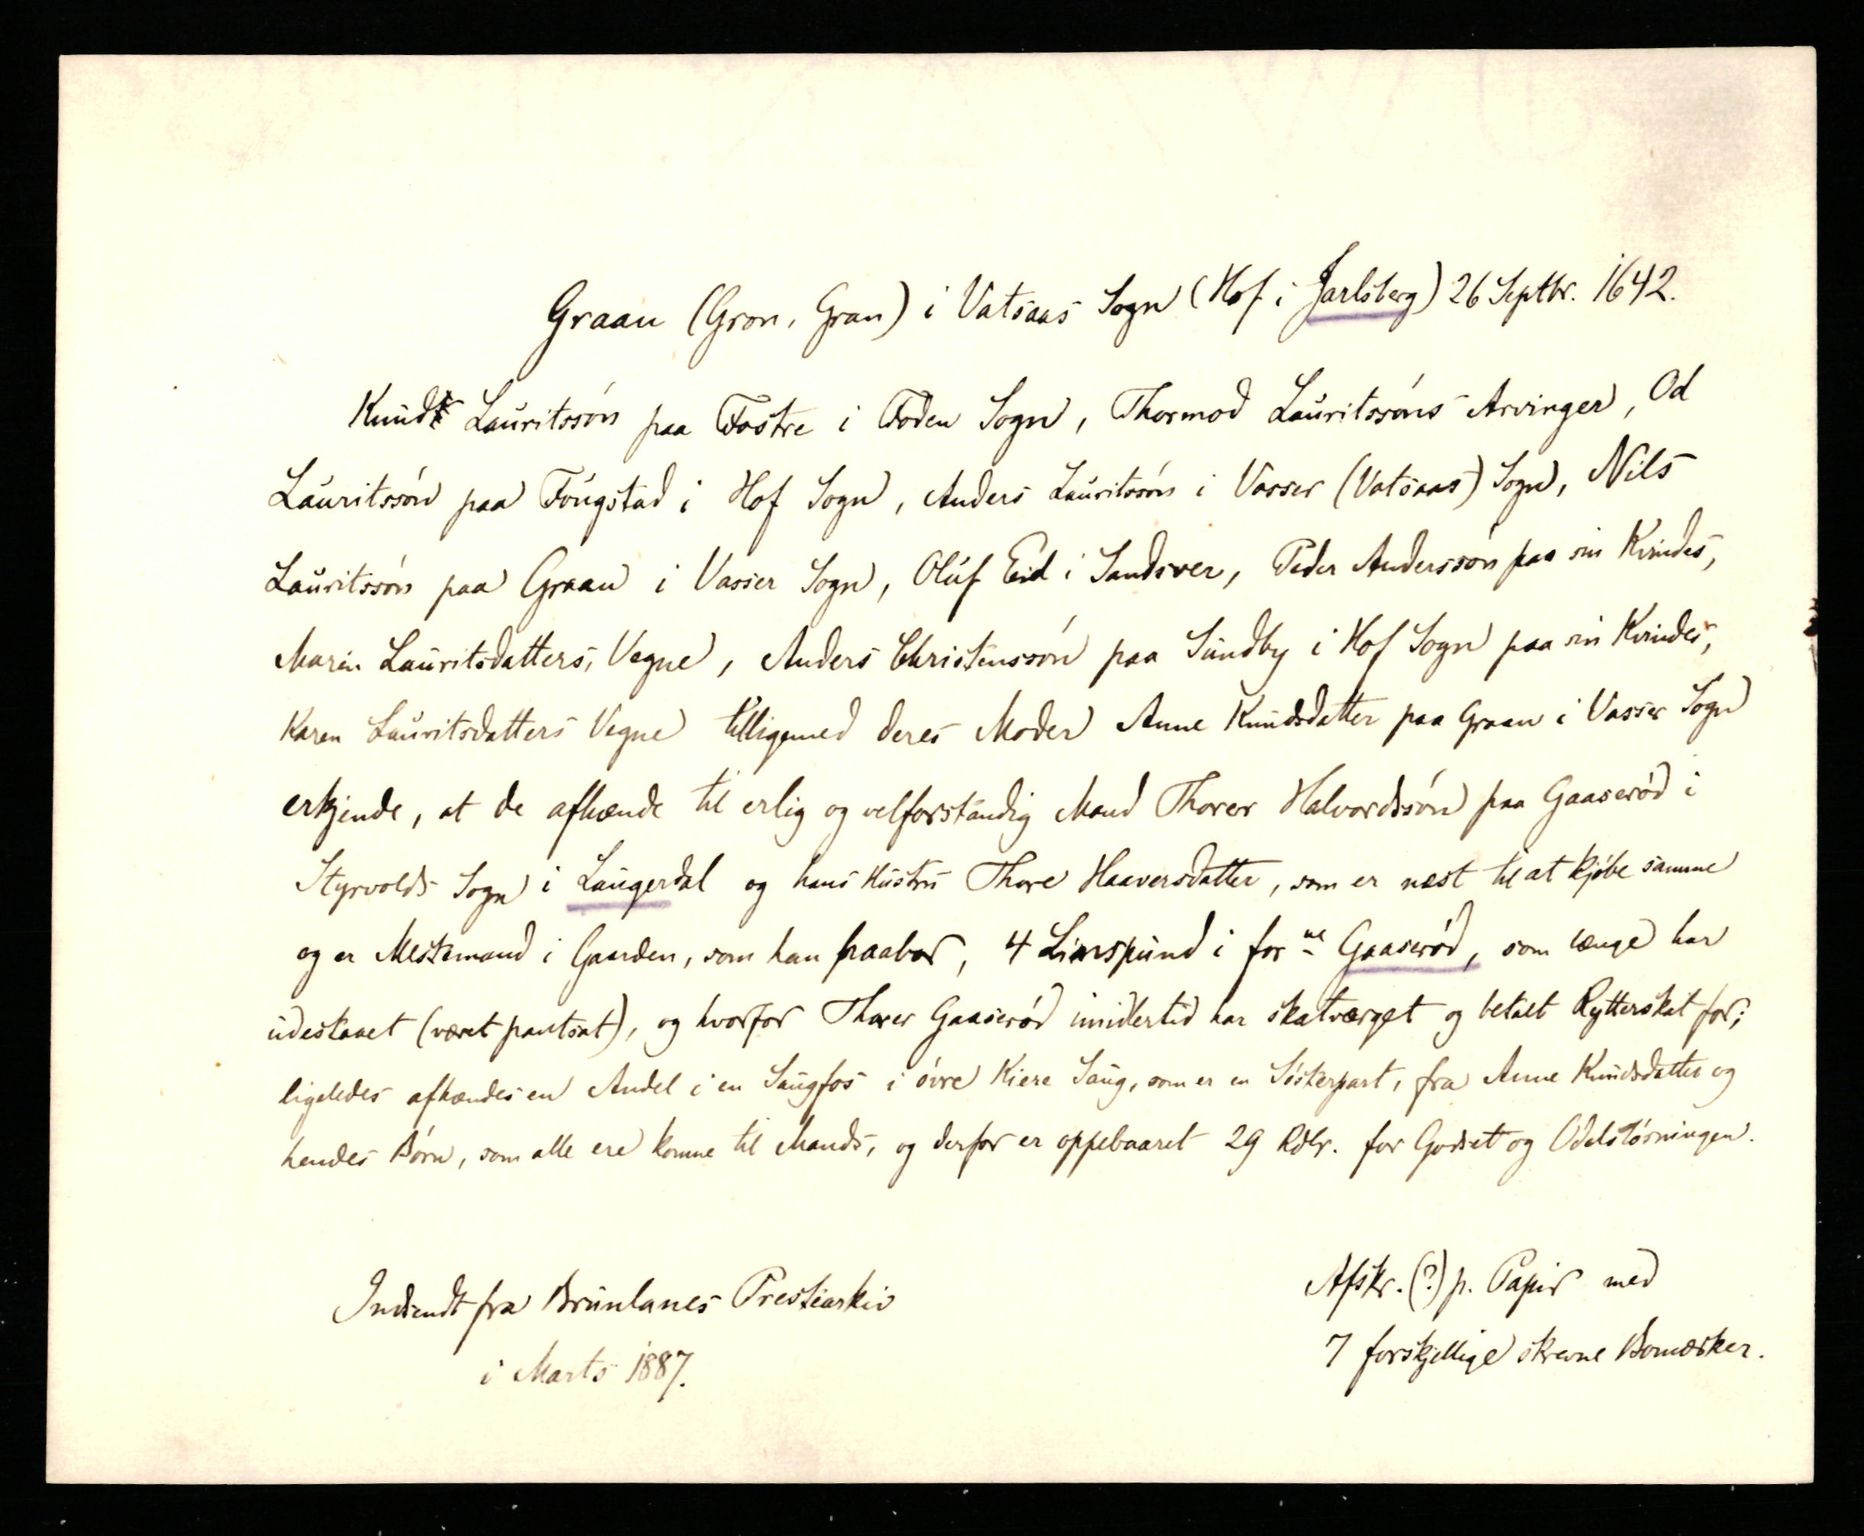 Graau (Gron, Gran) i Vatsaas Sogn (Hof i Jarlsberg) 26 Septbr. 1642.
Knud Lauritssøn paa Fostre i Foden Sogn, Thormod Lauritssøns Arvinger, Od
Lauritssøn paa Fougstad i Hof Sogn, Anders Lauritssøn i Vasser (Vatsaas) Sogn, Nils
Lauritssøn paa Graau i Vasser Sogn, Oluf Eid i Sandsver, Peder Anderssøn paa sin Kvindes,
Maren Lauritsdatters, Vegne, Anders Christenssøn paa Sundby i Hof Sogn paa sin Kvindes,
Karen Lauritsdatters Vegne tilligemed deres Moder Anne Knudsdatter paa Graau i Vasser Sogn
erkjende, at de afhænde til erlig og velforstandig Mand Thorer Halvordssøn paa Gaaserød i
Styrvolds Sogn i Laugerdal og hans Hustru Thore Haaversdatter, som er næst til at kjøbe samme
og er Mestemand i Gaarden, som han paabor, 4 Lispund i forne Gaaserød, som længe har
udestaaet (været pantsat), og hvorfor Thorer Gaaserød imidlertid har skatværget og betalt Rytterskat for;
ligeledes afhændes en Andel i en Saugfos i øvre Kiere Saug, som er en Søsterpart, fra Anne Knudsdatter og
hendes Børn, som alle ere komne til Mands, og derfor er oppebaaret 29 Rdlr. for Godset og Odelsløsningen.
Indsendt fra Brunlanes Prestearkiv
i Marts 1887.
Afskr. (?) p. Papir med
7 forskjellige skrevne Bomærker.